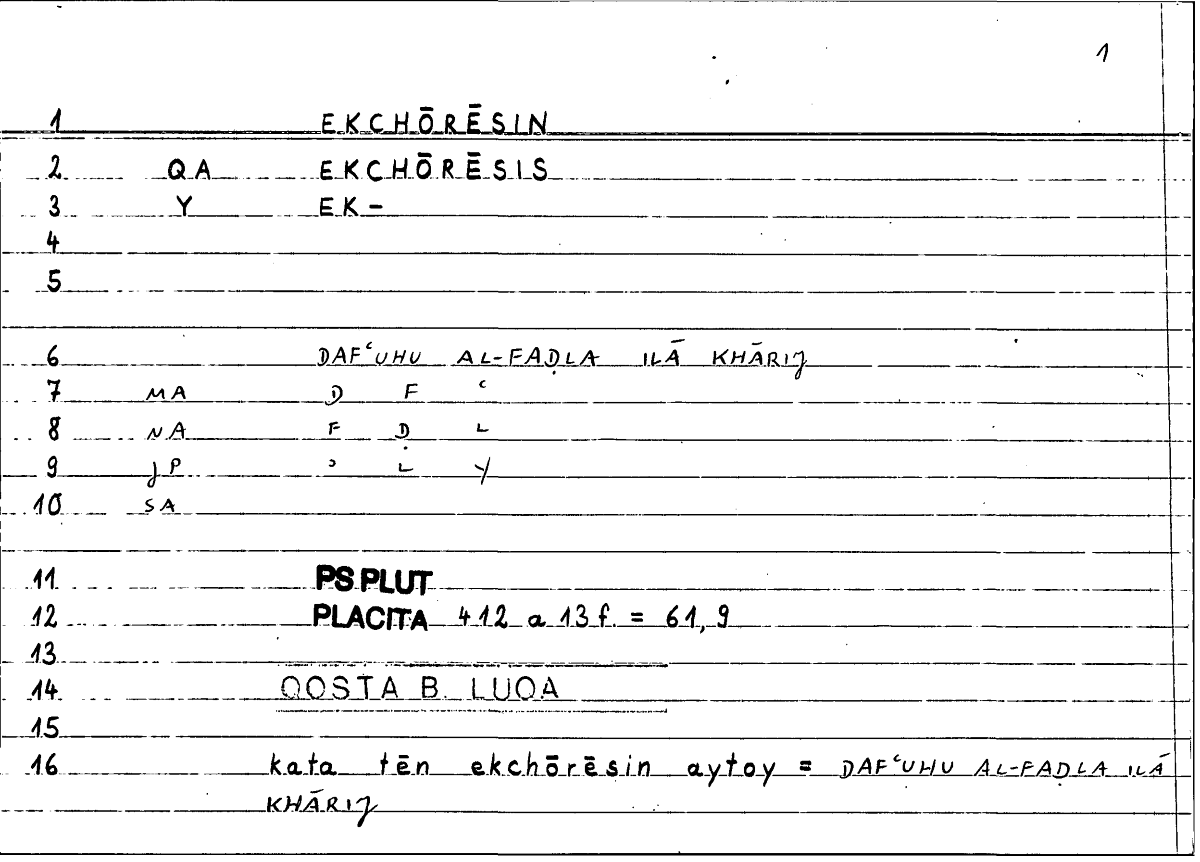 1
1 EKCHŌRĒSIN
2 QA EKCHŌRĒSIS
3 Y EK-
4
5
6 DAFʿUHU AL-FAḌLA ILĀ KHĀRIJ
7 MA D F ʿ
8 NA F Ḍ L
9 JP ʾ L Y
10 SA
11 PS PLUT
12 PLACITA 412 a 13 f. = 61, 9
13
14 QOSTA B. LUQA
15
16 kata tēn ekchōrēsin aytoy = DAFʿUHU AL-FAḌLA ILĀ
KHĀRIJ